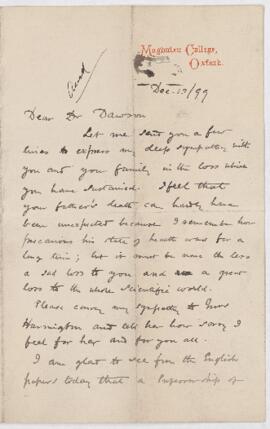 Magdalen College,
Oxford.
Dec. 13/99
Dear Dr Dawson
Let me send you a few
lines to express my deep sympathy with
you and your family in the loss which
you have sustained. I feel that
your father's death can hardly have
been unexpected because I remember how
precarious his state of health was for a
long time; but it must be none the less
a sad loss to you and a great
loss to the whole scientific world.
Please convey my sympathy to Mrs
Harrington and tell her how sorry I
feel for her and for you all.
I am glad to see from the English
papers today that a Superintendship of